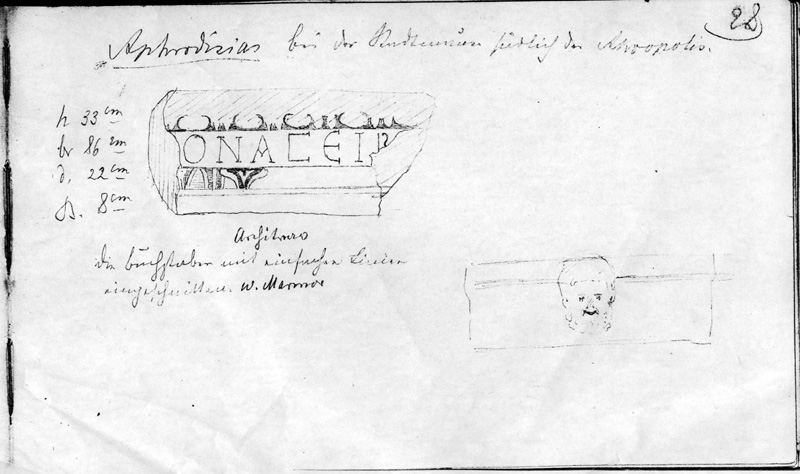 28
Aphrodisias bei der Stadtmauer südlich der Akropolis.
h 33 cm
br 86 cm
d. 22 cm
B. 8 cm
ONACEI
Architrav
die Buchstaben mit einfachen Linien
eingeschnitten. w. Marmor